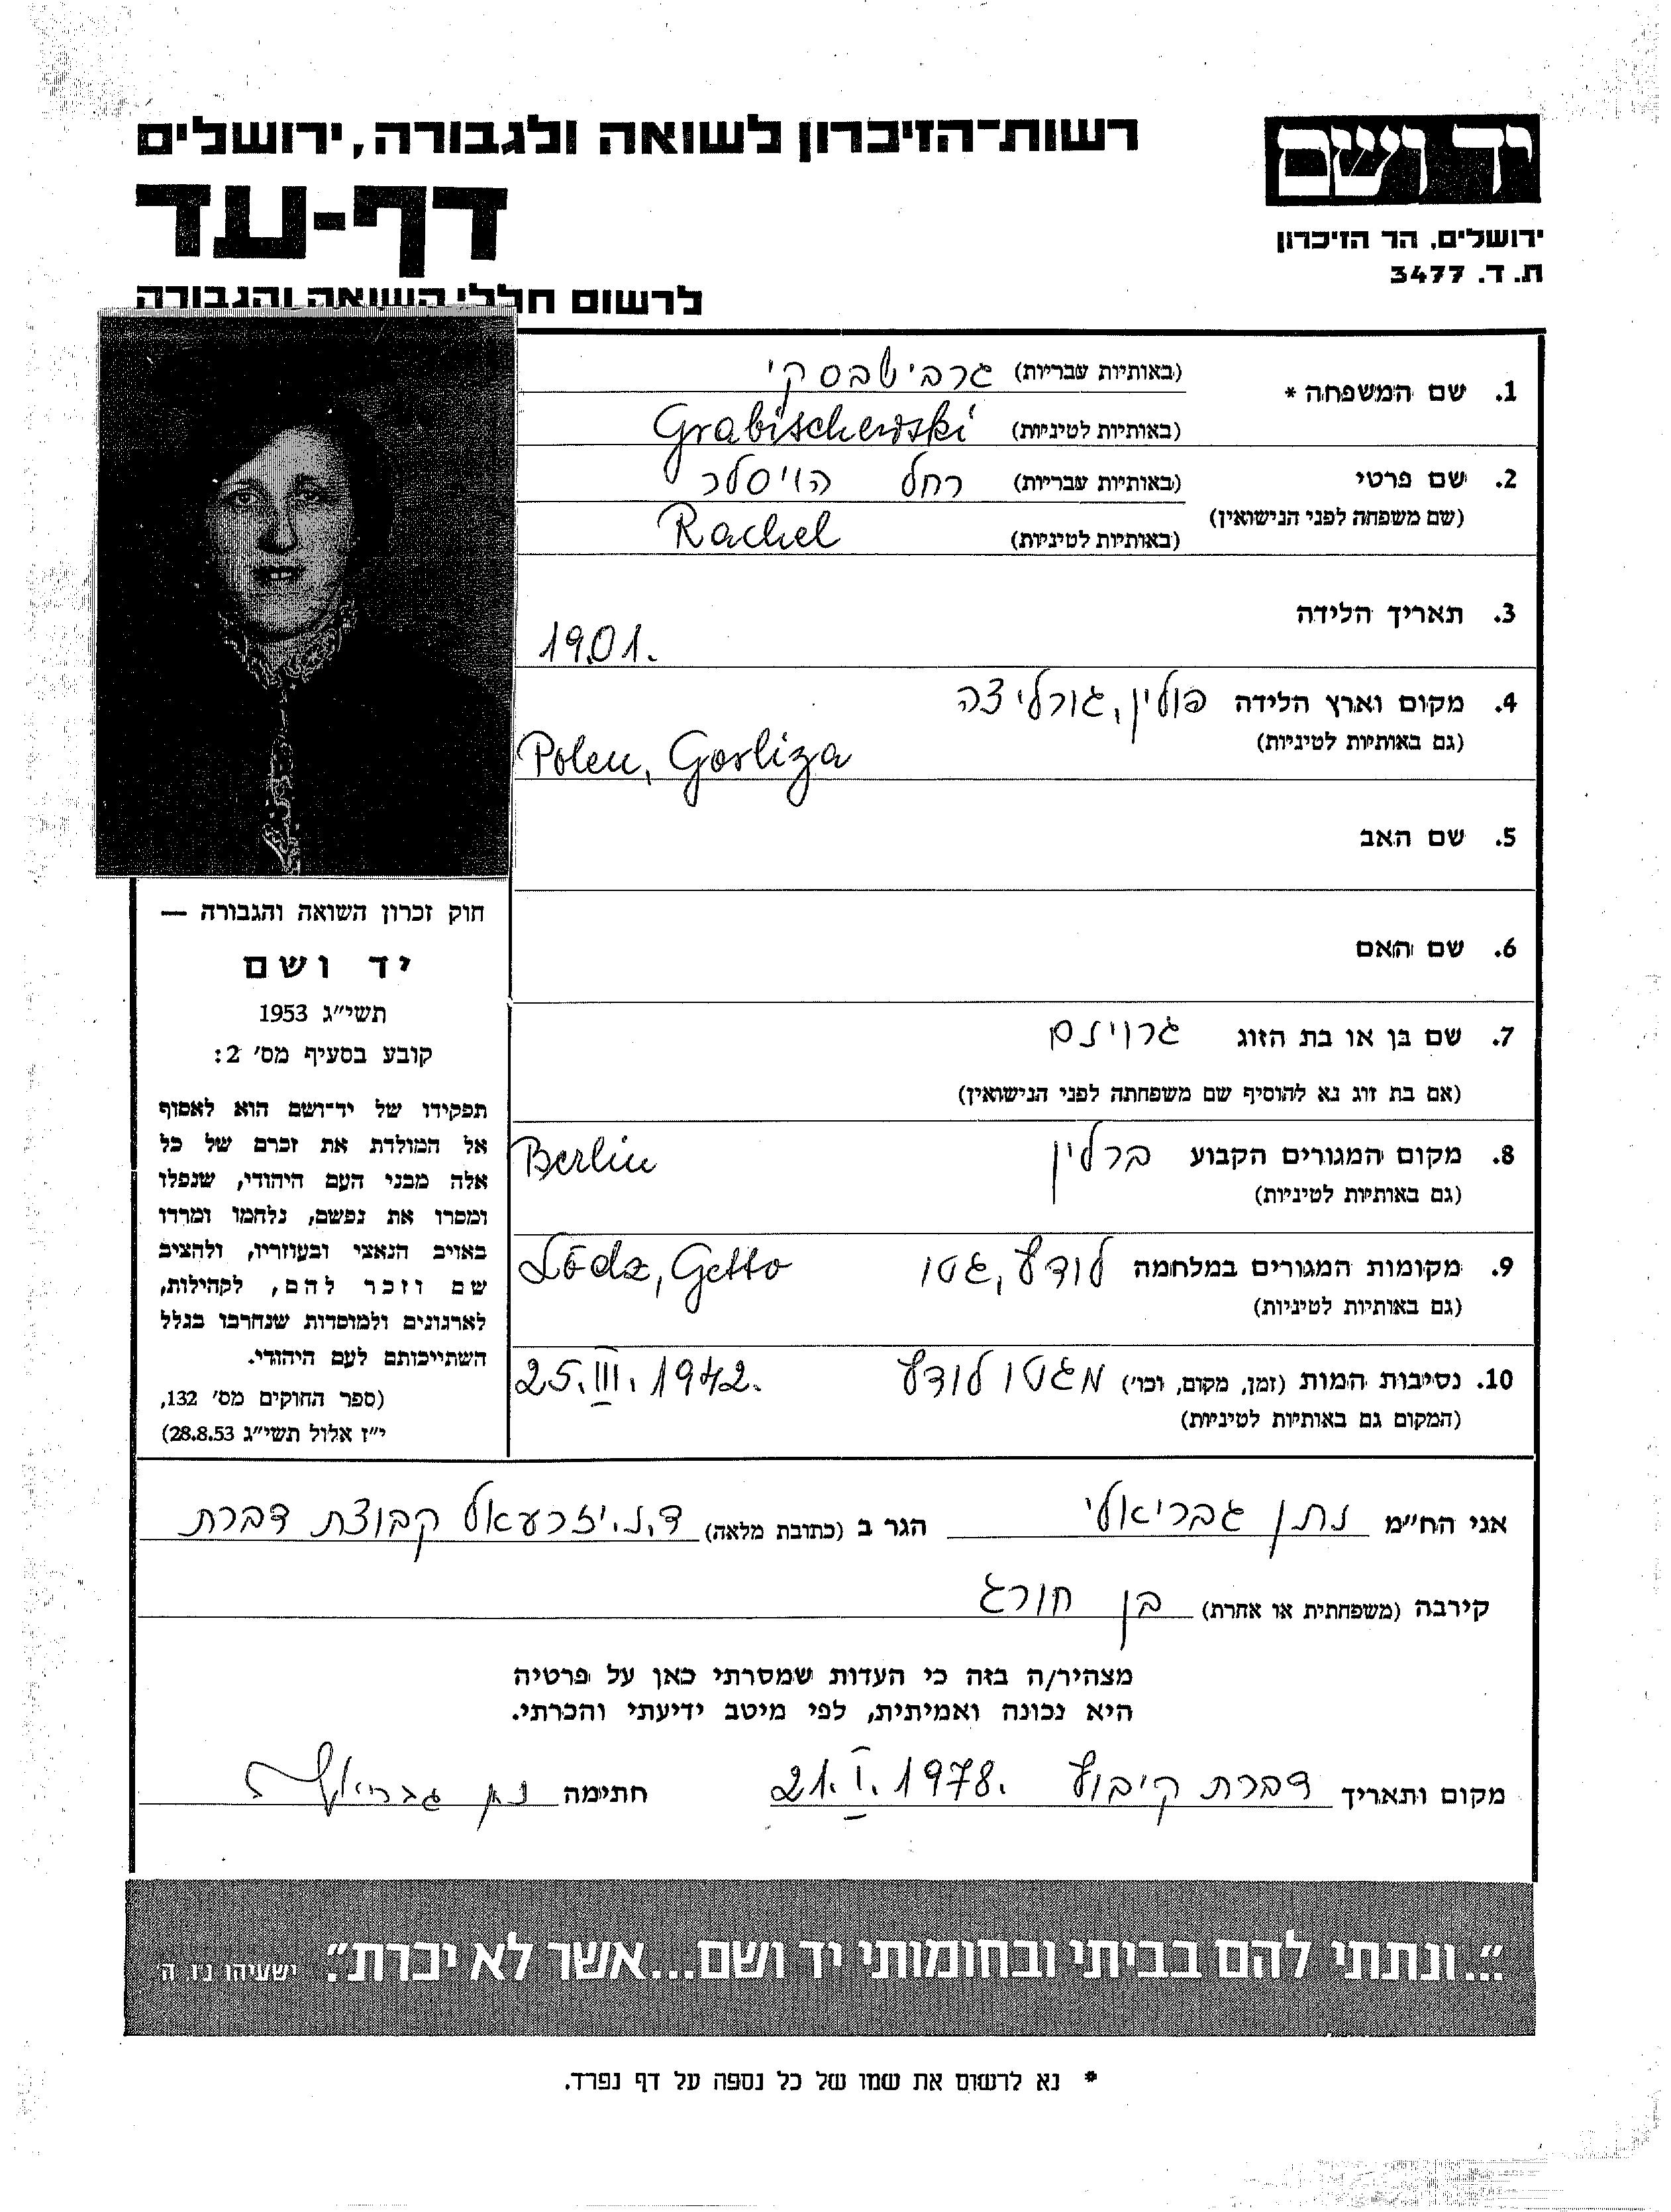 יד ושם
ירושלים, הר הזיכרון
ת. ד. 3477
רשות־הזיכרון לשואה ולגבורה, ירושלים
דף-עד
לרשום חללי השואה והגבורה
1. שם המשפחה * (באותיות עבריות) גרבישבסקי
(באותיות לטיניות) Grabischewski
2. שם פרטי (באותיות עבריות) רחל הויסלר
(שם משפחה לפני הנישואין)
(באותיות לטיניות) Rachel
3. תאריך הלידה
1901.
4. מקום וארץ הלידה פולין, גורליצה
(גם באותיות לטיניות)
Polen, Gorliza
5. שם האב
6. שם האם
7. שם בן או בת הזוג גרוינם
(אם בת זוג נא להוסיף שם משפחתה לפני הנישואין)
8. מקום המגורים הקבוע ברלין Berlin
(גם באותיות לטיניות)
9. מקומות המגורים במלחמה לודץ, גטו Lódz, Getto
(גם באותיות לטיניות)
10. נסיבות המות (זמן, מקום, וכו') מגטו לודץ 25.III.1942.
(המקום גם באותיות לטיניות)
חוק זכרון השואה והגבורה —
יד ושם
תשי״ג 1953
קובע בסעיף מס׳ 2:
תפקידו של יד־ושם הוא לאסוף
אל המולדת את זכרם של כל
אלה מבני העם היהודי, שנפלו
ומסרו את נפשם, נלחמו ומרדו
באויב הנאצי ובעוזריו, ולהציב
שם וזכר להם, לקהילות,
לארגונים ולמוסדות שנחרבו בגלל
השתייכותם לעם היהודי.
(ספר החוקים מס׳ 132,
י״ז אלול תשי״ג 28.8.53)
אני הח״מ נתן גבריאלי הגר ב (כתובת מלאה) ד.נ. יזרעאל קבוצת דברת
קירבה (משפחתית או אחרת) בן חורג
מצהיר/ה בזה כי העדות שמסרתי כאן על פרטיה
היא נכונה ואמיתית, לפי מיטב ידיעתי והכרתי.
מקום ותאריך דברת קיבוץ 21.I.1978. חתימה נתן גבריאלי
״...ונתתי להם בביתי ובחומותי יד ושם...אשר לא יכרת״. ישעיהו נ״ו, ה׳
* נא לרשום את שמו של כל נספה על דף נפרד.